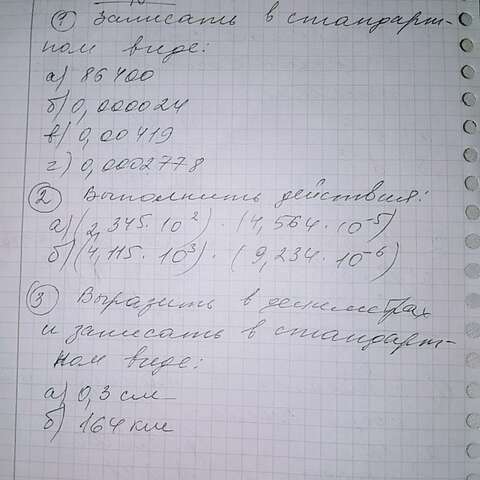 ① Записать в стандарт-
ном виде:
а) 86400
б) 0,000024
в) 0,00419
г) 0,0002778
② Выполнить действия:
а) (2,345 · 10²) · (4,564 · 10⁻⁵)
б) (4,115 · 10³) · (9,234 · 10⁻⁶)
③ Выразить в дециметрах
и записать в стандарт-
ном виде:
а) 0,3 см
б) 164 км